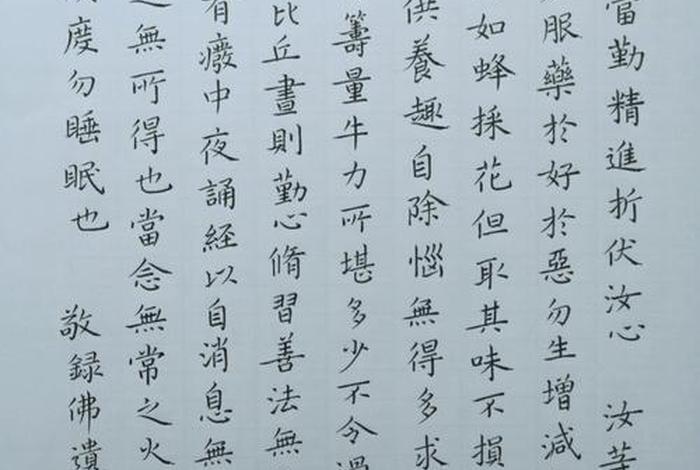 當勤精進折伏汝心 汝等
服藥於好於惡勿生增減
如蜂採花但取其味不損
供養趣自除惱無得多求
籌量牛力所堪多少不令過
比丘晝則勤心脩習善法無
有癈中夜誦經以自消息無
之無所得也當念無常之火
度勿睡眠也 敬録佛遺